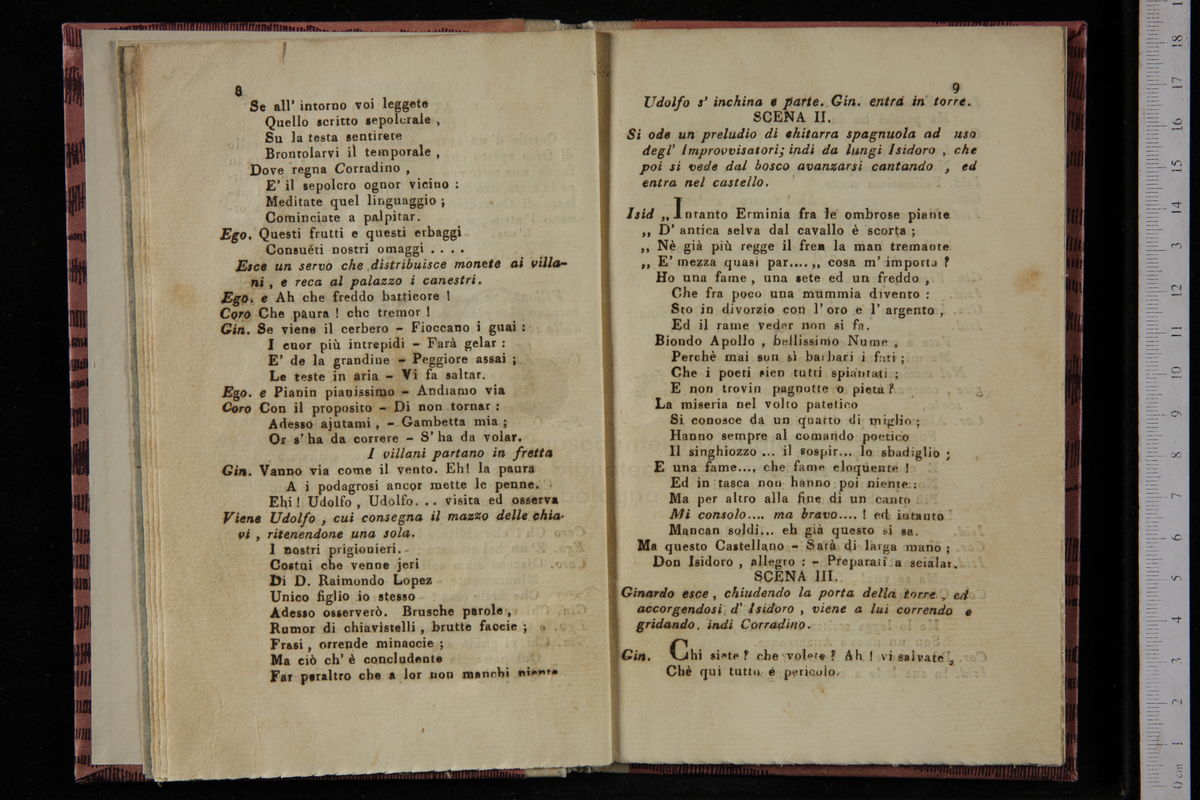 8
Se all' intorno voi leggete
Quello scritto sepolcrale ,
Su la testa sentirete
Brontolarvi il temporale ,
Dove regna Corradino ,
E' il sepolcro ognor vicino :
Meditate quel linguaggio ;
Cominciate a palpitar.
Ego. Questi frutti e questi erbaggi
Consuéti nostri omaggi . . . .
Esce un servo che distribuisce monete ai villa-
ni , e reca al palazzo i canestri.
Ego. e Ah che freddo batticore !
Coro Che paura ! che tremor !
Gin. Se viene il cerbero – Fioccano i guai :
I cuor più intrepidi – Farà gelar :
E' de la grandine – Peggiore assai ;
Le teste in aria – Vi fa saltar.
Ego. e Pianin pianissimo – Andiamo via
Coro Con il proposito – Di non tornar :
Adesso ajutami , – Gambetta mia ;
Or s' ha da correre – S' ha da volar.
I villani partano in fretta
Gin. Vanno via come il vento. Eh! la paura
A i podagrosi ancor mette le penne.
Ehi ! Udolfo , Udolfo. . . visita ed osserva
Viene Udolfo , cui consegna il mazzo delle chia-
vi , ritenendone una sola.
I nostri prigionieri.
Costui che venne jeri
Di D. Raimondo Lopez
Unico figlio io stesso
Adesso osserverò. Brusche parole ,
Rumor di chiavistelli , brutte faccie ;
Frasi , orrende minaccie ;
Ma ciò ch' è concludente
Far peraltro che a lor non manchi niente
9
Udolfo s' inchina e parte. Gin. entra in torre.
SCENA II.
Si ode un preludio di chitarra spagnuola ad uso
degl' Improvvisatori; indi da lungi Isidoro , che
poi si vede dal bosco avanzarsi cantando , ed
entra nel castello.
Isid ,, Intanto Erminia fra le ombrose piante
,, D' antica selva dal cavallo è scorta ;
,, Nè già più regge il fren la man tremante
,, E' mezza quasi par.... ,, cosa m' importa ?
Ho una fame , una sete ed un freddo ,
Che fra poco una mummia divento :
Sto in divorzio con l' oro e l' argento ,
Ed il rame veder non si fa.
Biondo Apollo , bellissimo Nume ,
Perchè mai son sì barbari i fati ;
Che i poeti sien tutti spiantati ;
E non trovin pagnotte o pietà ?
La miseria nel volto patetico
Si conosce da un quarto di miglio ;
Hanno sempre al comando poetico
Il singhiozzo ... il sospir... lo sbadiglio ;
E una fame..., che fame eloquente !
Ed in tasca non hanno poi niente :
Ma per altro alla fine di un canto
Mi consolo.... ma bravo.... ! ed intanto
Mancan soldi... eh già questo si sa.
Ma questo Castellano – Sarà di larga mano ;
Don Isidoro , allegro : – Preparati a scialar.
SCENA III.
Ginardo esce , chiudendo la porta della torre , ed
accorgendosi d' Isidoro , viene a lui correndo e
gridando. indi Corradino.
Gin. Chi siete ? che volete ? Ah ! vi salvate ,
Chè qui tutto è pericolo.